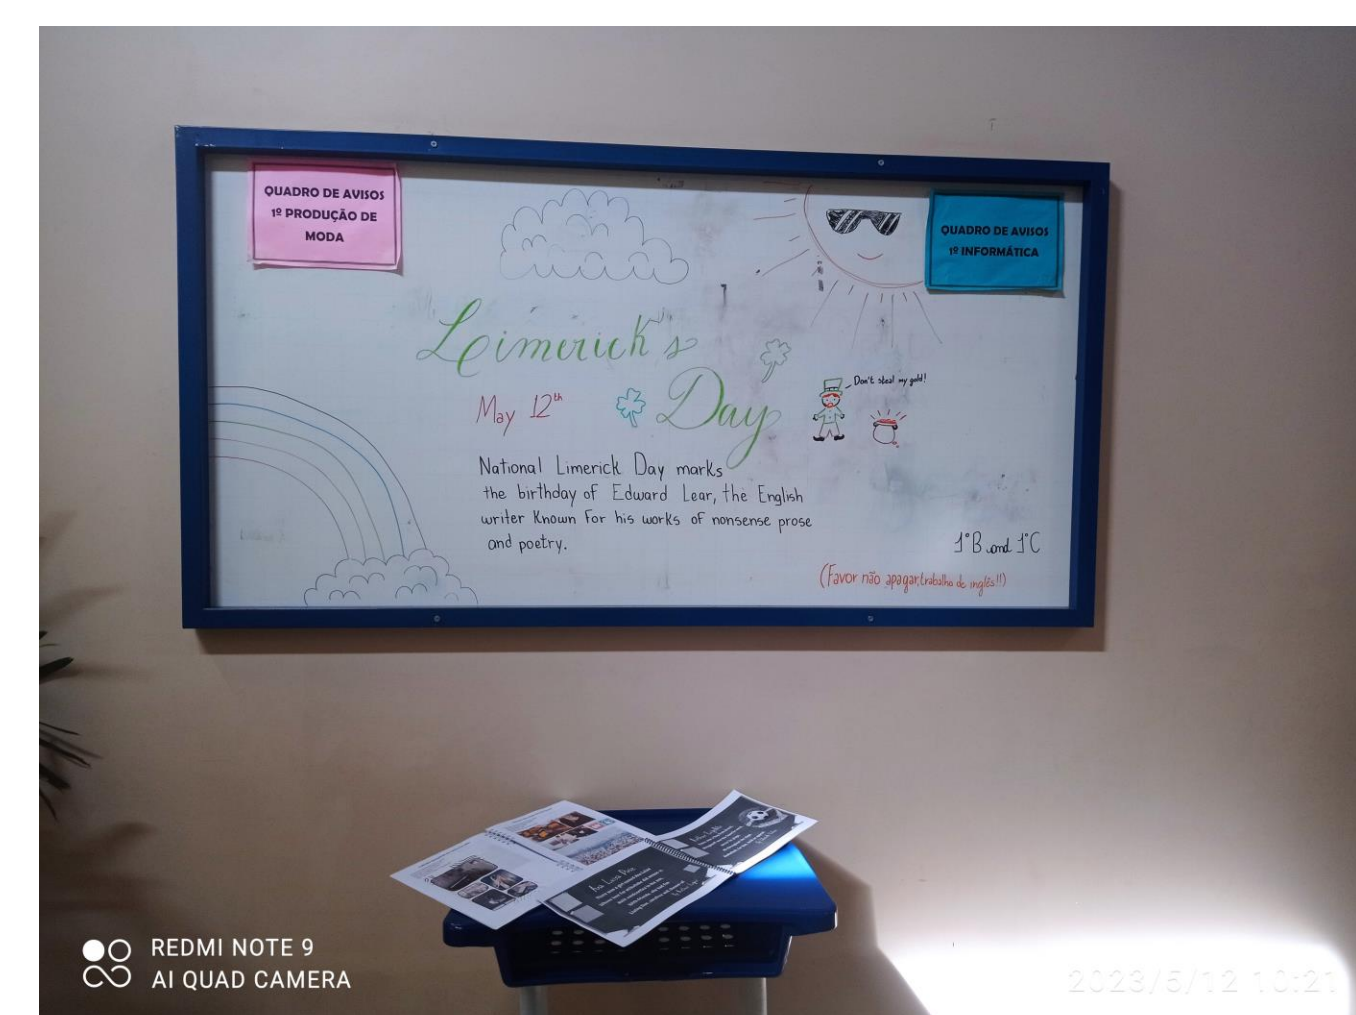 QUADRO DE AVISOS
1º PRODUÇÃO DE
MODA
QUADRO DE AVISOS
1º INFORMÁTICA
Limerick's
Day
May 12th
Don't steal my gold!
National Limerick Day marks
the birthday of Edward Lear, the English
writer Known for his works of nonsense prose
and poetry.
1°B and 1°C
(Favor não apagar, trabalho de inglês!!)
Ana Luisa
REDMI NOTE 9
AI QUAD CAMERA
2023/5/12 10:21